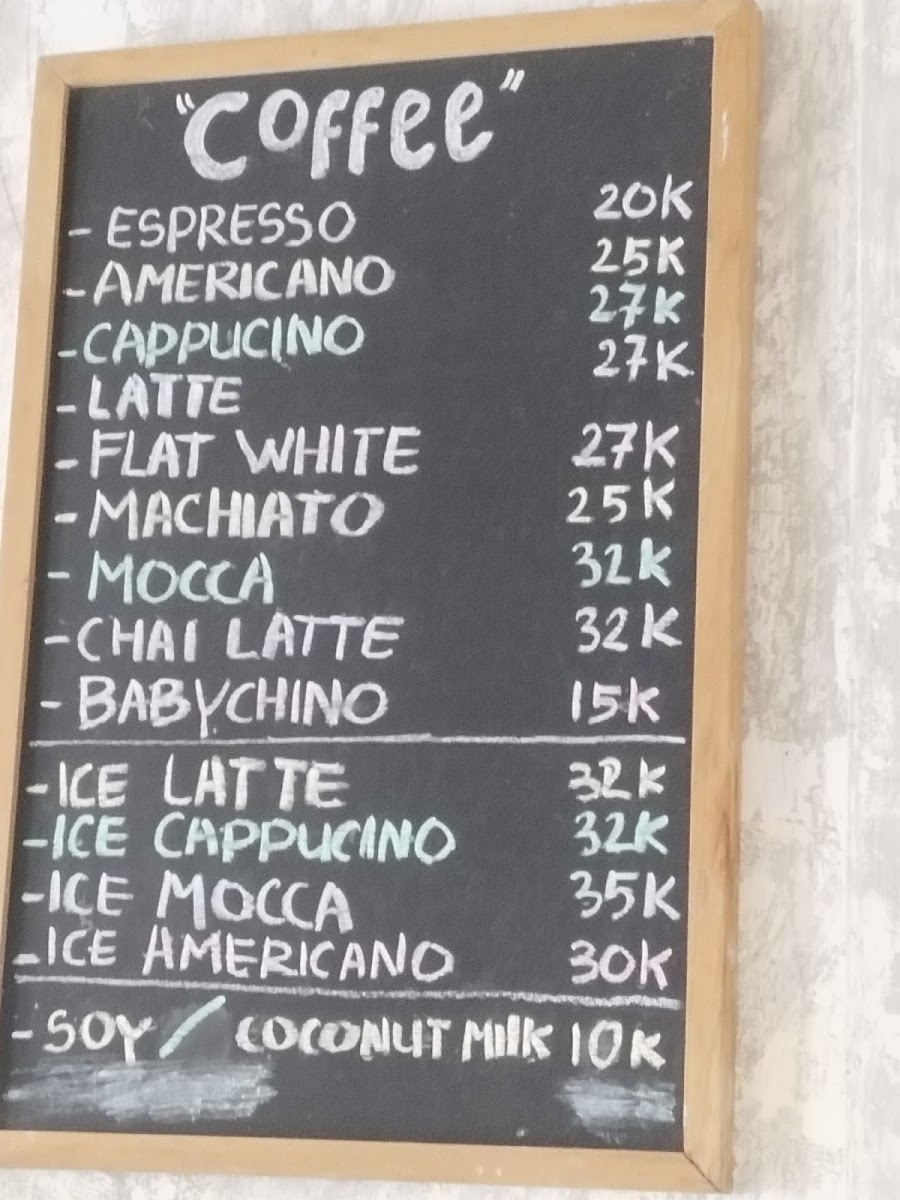 "Coffee"
- ESPRESSO 20K
- AMERICANO 25K
- CAPPUCINO 27K
- LATTE 27K
- FLAT WHITE 27K
- MACHIATO 25K
- MOCCA 32K
- CHAI LATTE 32K
- BABYCHINO 15K
- ICE LATTE 32K
- ICE CAPPUCINO 32K
- ICE MOCCA 35K
- ICE AMERICANO 30K
- SOY / COCONUT MILK 10K